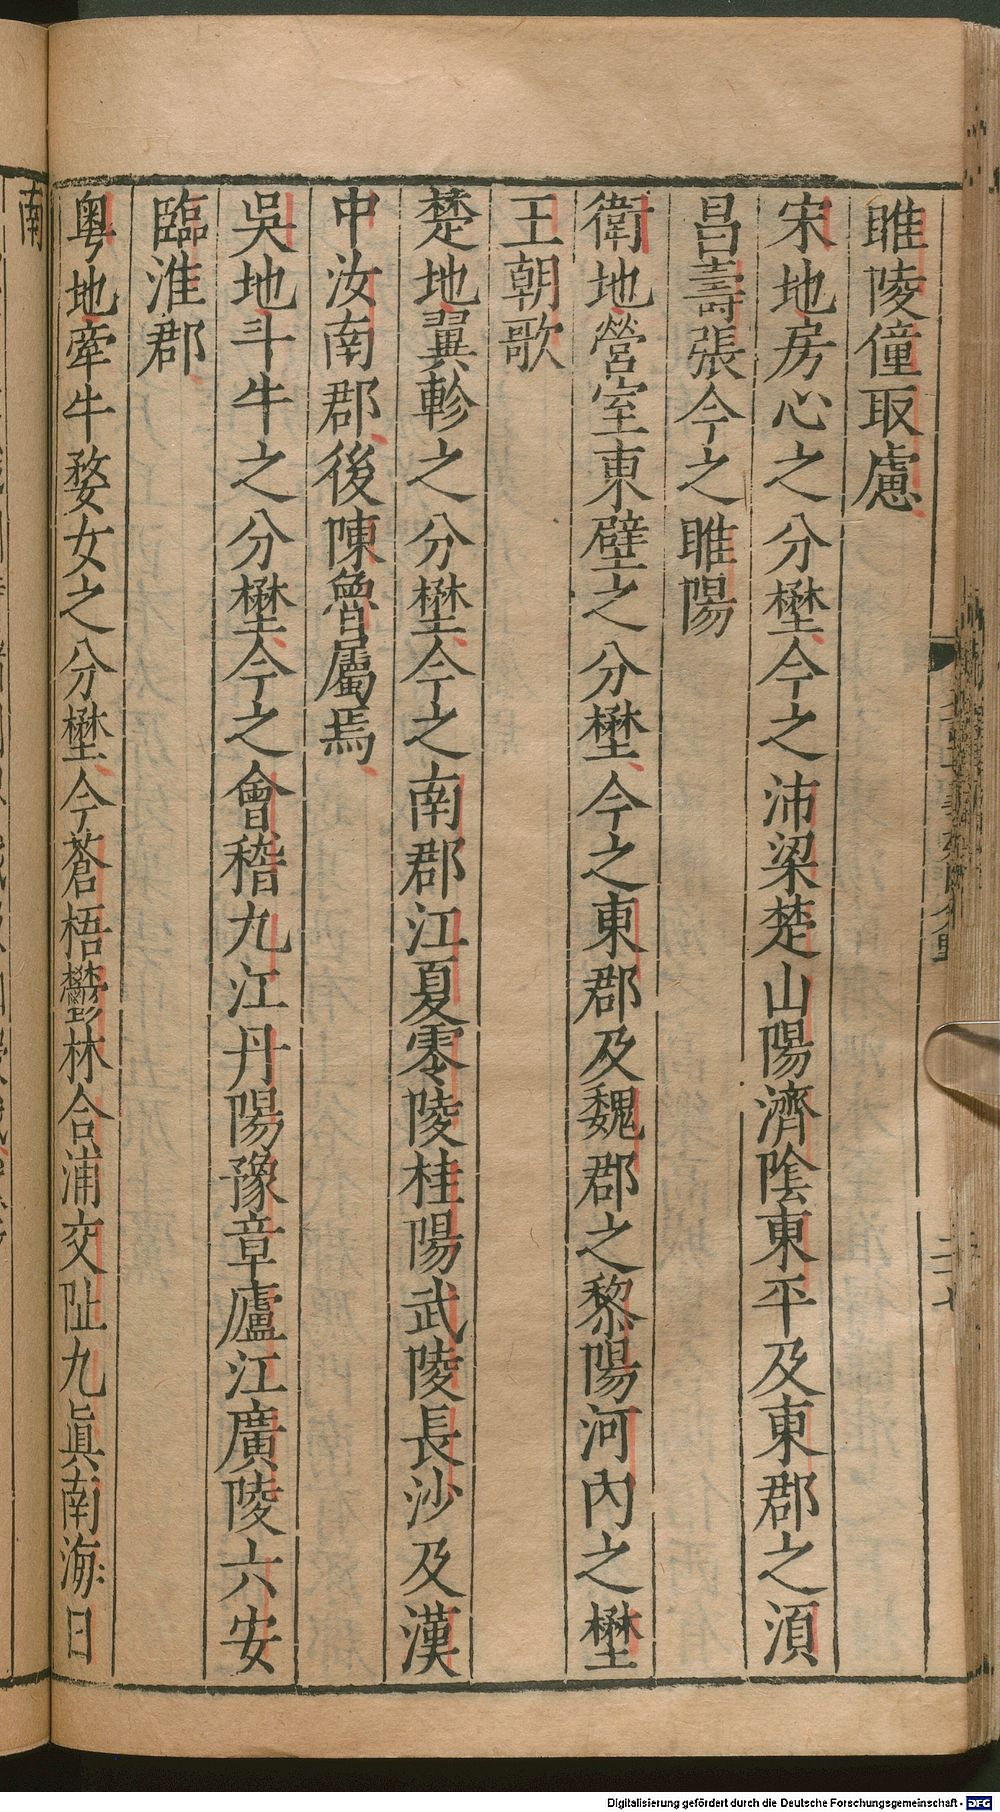 睢陵僮取慮
宋地房心之分壄今之沛梁楚山陽濟陰東平及東郡之須
昌壽張今之睢陽
衛地營室東壁之分壄今之東郡及魏郡之黎陽河內之壄
王朝歌
楚地翼軫之分壄今之南郡江夏零陵桂陽武陵長沙及漢
中汝南郡後陳魯屬焉
吳地斗牛之分壄今之會稽九江丹陽豫章廬江廣陵六安
臨淮郡
粵地牽牛婺女之分壄今蒼梧鬱林合浦交阯九眞南海日
南
Digitalisierung gefördert durch die Deutsche Forschungsgemeinschaft - DFG